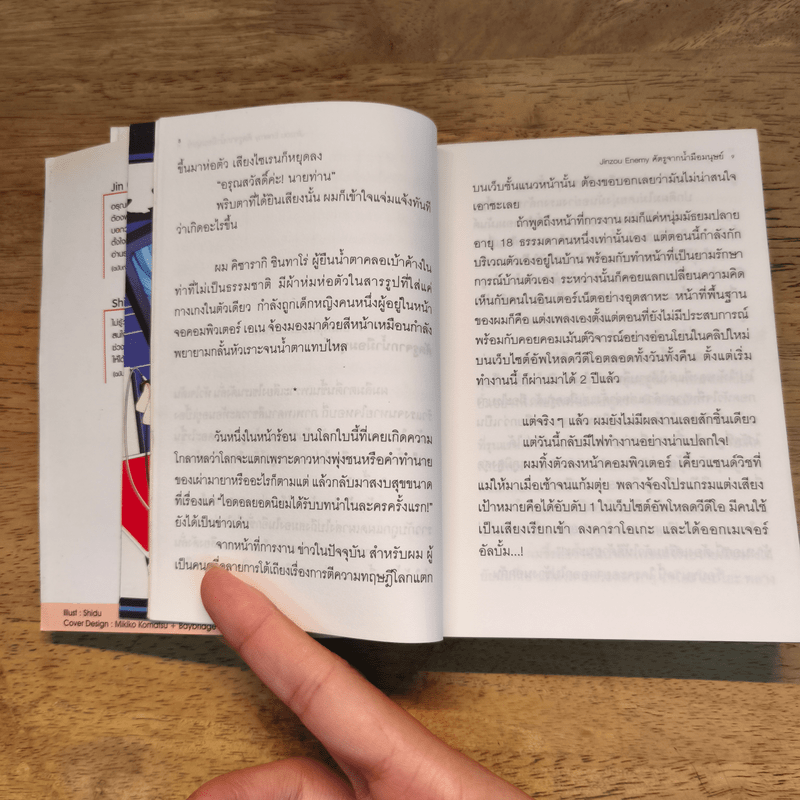 ขึ้นมาห่อตัว เสียงไซเรนก็หยุดลง
"อรุณสวัสดิ์ค่ะ! นายท่าน"
พริบตาที่ได้ยินเสียงนั้น ผมก็เข้าใจแจ่มแจ้งทันที
ว่าเกิดอะไรขึ้น
ผม คิซารากิ ชินทาโร่ ผู้ยืนน้ำตาคลอเบ้าค้างใน
ท่าที่ไม่เป็นธรรมชาติ มีผ้าห่มห่อตัวในสารรูปที่ใส่แค่
กางเกงในตัวเดียว กำลังถูกเด็กหญิงคนหนึ่งผู้อยู่ในหน้า
จอคอมพิวเตอร์ เอเน จ้องมองมาด้วยสีหน้าเหมือนกำลัง
พยายามกลั้นหัวเราะจนน้ำตาแทบไหล
วันหนึ่งในหน้าร้อน บนโลกใบนี้ที่เคยเกิดความ
โกลาหลว่าโลกจะแตกเพราะดาวหางพุ่งชนหรือคำทำนาย
ของเผ่ามายาหรืออะไรก็ตามแต่ แล้วกลับมาสงบสุขขนาด
ที่เรื่องแค่ "ไอดอลยอดนิยมได้รับบทนำในละครครั้งแรก!"
ยังได้เป็นข่าวเด่น
จากหน้าที่การงาน ข่าวในปัจจุบัน สำหรับผม ผู้
เป็นคนที่คลายการโต้เถียงเรื่องการตีความทฤษฎีโลกแตก
Jinzou Enemy ศัตรูจากน้ำมือมนุษย์
บนเว็บชั้นแนวหน้านั้น ต้องขอบอกเลยว่ามันไม่น่าสนใจ
เอาซะเลย
ถ้าพูดถึงหน้าที่การงาน ผมก็แค่หนุ่มมัธยมปลาย
อายุ 18 ธรรมดาคนหนึ่งเท่านั้นเอง แต่ตอนนี้กำลังกัก
บริเวณตัวเองอยู่ในบ้าน พร้อมกับทำหน้าที่เป็นยามรักษา
การณ์บ้านตัวเอง ระหว่างนั้นก็คอยแลกเปลี่ยนความคิด
เห็นกับคนในอินเตอร์เน็ตอย่างอุตสาหะ หน้าที่พื้นฐาน
ของผมก็คือ แต่งเพลงเองตั้งแต่ตอนที่ยังไม่มีประสบการณ์
พร้อมกับคอยคอมเม้นต์วิจารณ์อย่างอ่อนโยนในคลิปใหม่
บนเว็บไซต์อัพโหลดวีดีโอตลอดทั้งวันทั้งคืน ตั้งแต่เริ่ม
ทำงานนี้ ก็ผ่านมาได้ 2 ปีแล้ว
แต่จริงๆ แล้ว ผมยังไม่มีผลงานเลยสักชิ้นเดียว
แต่วันนี้กลับมีไฟทำงานอย่างน่าแปลกใจ!
ผมทิ้งตัวลงหน้าคอมพิวเตอร์ เคี้ยวแซนด์วิชที่
แม่ให้มาเมื่อเช้าจนแก้มตุ่ย พลางจ้องโปรแกรมแต่งเสียง
เป้าหมายคือได้อับดับ 1 ในเว็บไซต์อัพโหลดวีดีโอ มีคนใช้
เป็นเสียงเรียกเข้า ลงคาราโอเกะ และได้ออกเมเจอร์
อัลบั้ม...!
Illust : Shidu
Cover Design : Mikiko Komatsu + Baybridge